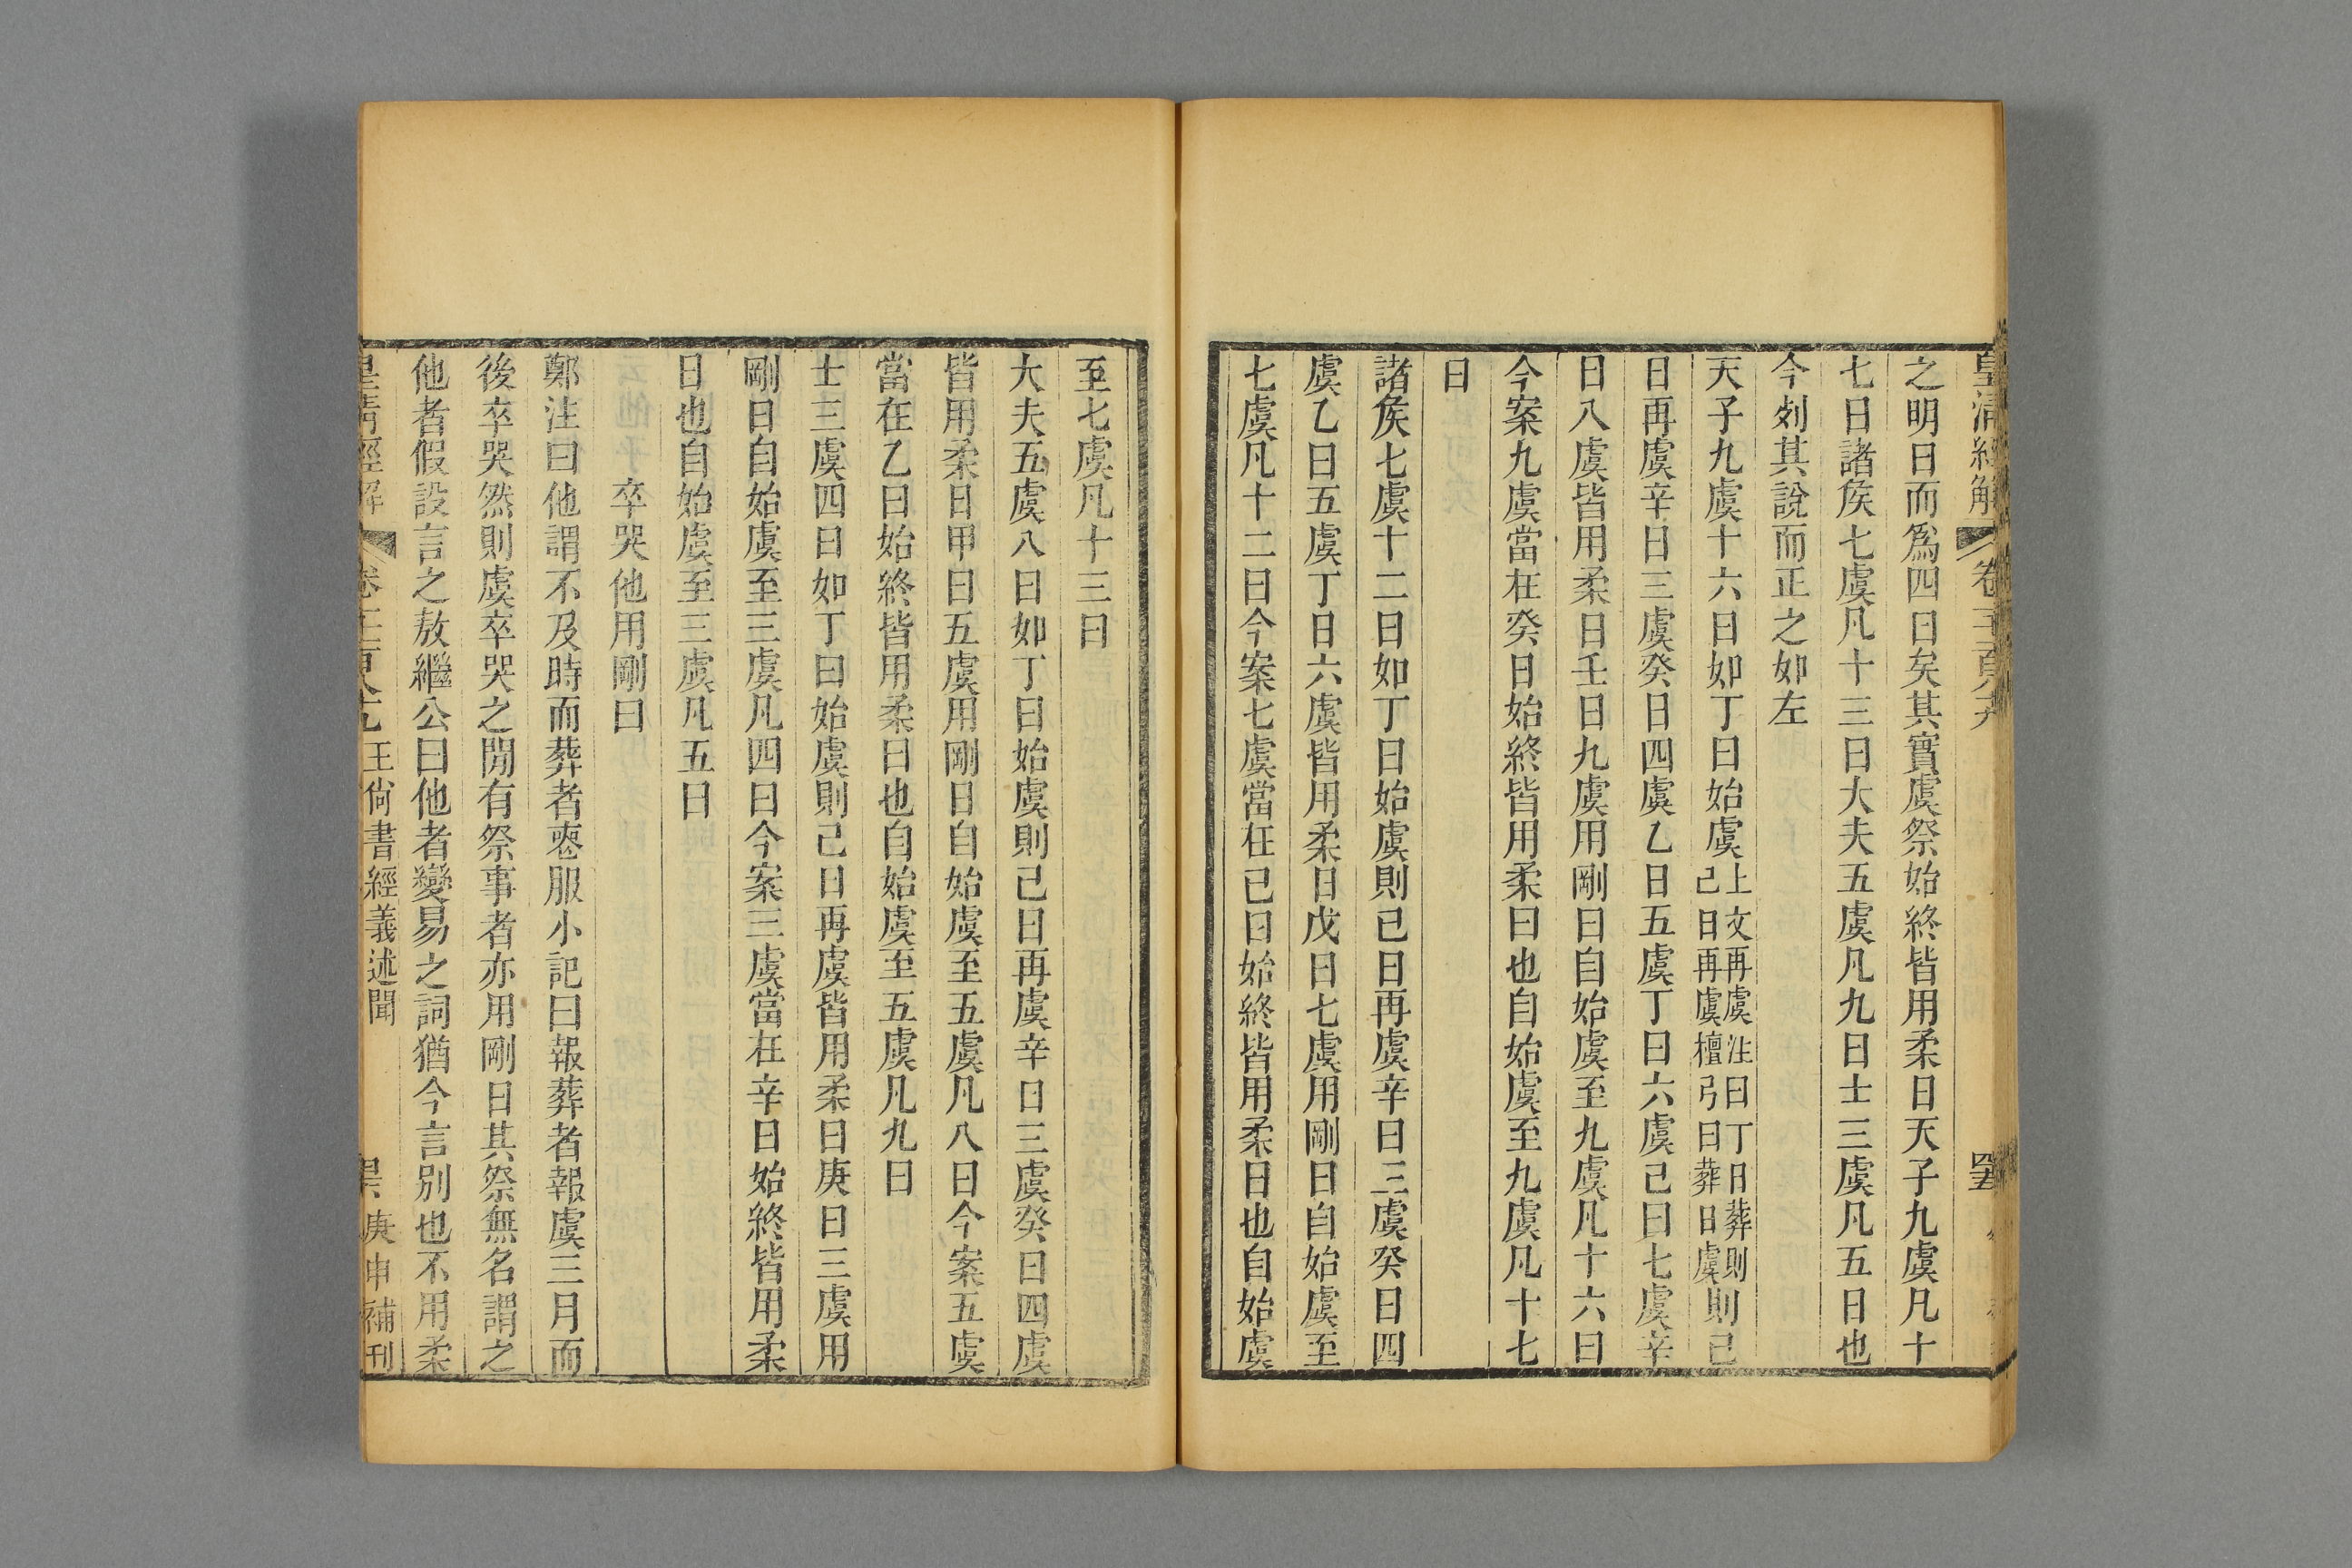 皇清經解
之明日而爲四日矣其實虞祭始終皆用柔日天子九虞凡十
七日諸矦七虞凡十三日大夫五虞凡九日士三虞凡五日也
今列其說而正之如左
天子九虞十六日如丁日始虞上文再虞注曰丁日葬則己日再虞檀弓曰葬日虞則己
日再虞辛日三虞癸日四虞乙日五虞丁日六虞己日七虞辛
日八虞皆用柔日壬日九虞用剛日自始虞至九虞凡十六日
今案九虞當在癸日始終皆用柔日也自始虞至九虞凡十七
日
諸矦七虞十二日如丁日始虞則已日再虞辛日三虞癸日四
虞乙日五虞丁日六虞皆用柔日戊日七虞用剛日自始虞至
七虞凡十二日今案七虞當在已日始終皆用柔日也自始虞
至七虞凡十三日
大夫五虞八日如丁日始虞則己日再虞辛日三虞癸日四虞
皆用柔日甲日五虞用剛日自始虞至五虞凡八日今案五虞
當在乙日始終皆用柔日也自始虞至五虞凡九日
士三虞四日如丁日始虞則己日再虞皆用柔日庚日三虞用
剛日自始虞至三虞凡四日今案三虞當在辛日始終皆用柔
日也自始虞至三虞凡五日
卒哭他用剛日
鄭注曰他謂不及時而葬者喪服小記曰報葬者報虞三月而
後卒哭然則虞卒哭之閒有祭事者亦用剛日其祭無名謂之
他者假設言之敖繼公曰他者變易之詞猶今言別也不用柔
皇清經解 王尚書經義述聞 庚申補刊